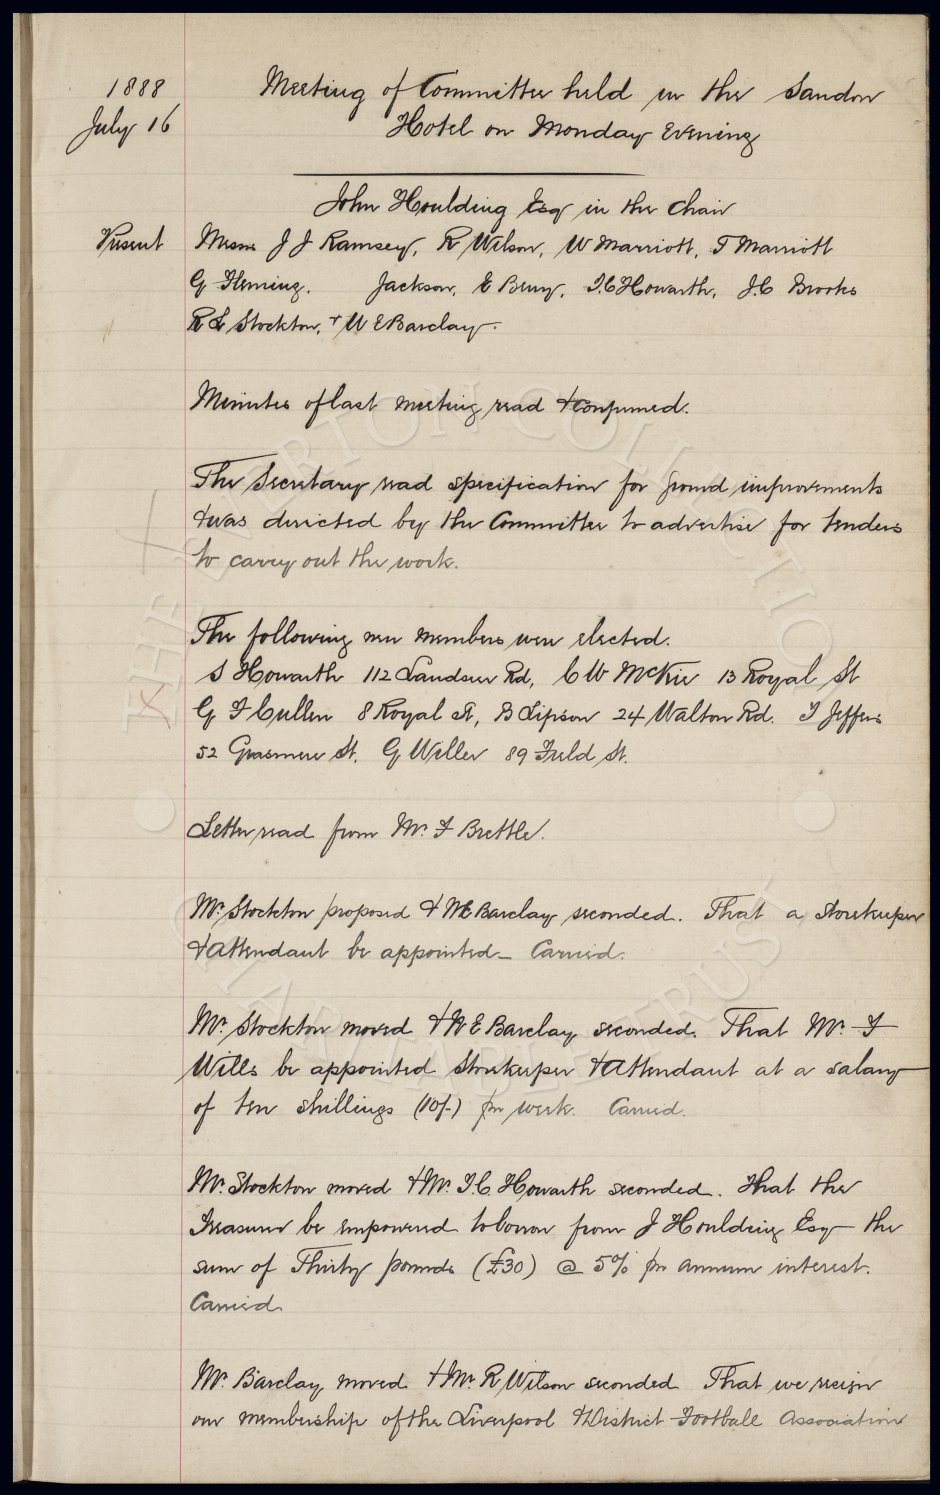 1888
July 16
Meeting of Committee held in the Sandon
Hotel on Monday Evening
John Houlding Esq in the Chair
Present
Messrs J J Ramsey, R Wilson, W Marriott, T Marriott
G Fleming, Jackson, E Berry, T.C Howarth, J.C Brooks
R L Stockton, + W E Barclay.
Minutes of last meeting read + Confirmed.
The Secretary read specification for ground improvements
+ was directed by the Committee to advertise for tenders
to carry out the work.
The following new members were elected.
S Howarth 112 Landseer Rd, C W McKie 13 Royal St
G F Cullen 8 Royal St, B Lipson 24 Walton Rd. T Jeffers
52 Grasmere St, G Weller 89 Field St.
Letter read from Mr. F Brettle.
Mr. Stockton proposed + W E Barclay seconded. That a Storekeeper
+ Attendant be appointed - Carried.
Mr. Stockton moved + W E Barclay seconded. That Mr. F
Wills be appointed Storekeeper + Attendant at a salary
of ten shillings (10/-) per week. Carried.
Mr. Stockton moved + Mr. T.C Howarth seconded. That the
Treasurer be empowered to borrow from J Houlding Esq the
sum of Thirty pounds (£30) @ 5% per annum interest.
Carried.
Mr. Barclay moved + Mr R Wilson seconded That we resign
our membership of the Liverpool + District Football Association
THE EVERTON COLLECTION
CHARITABLE TRUST